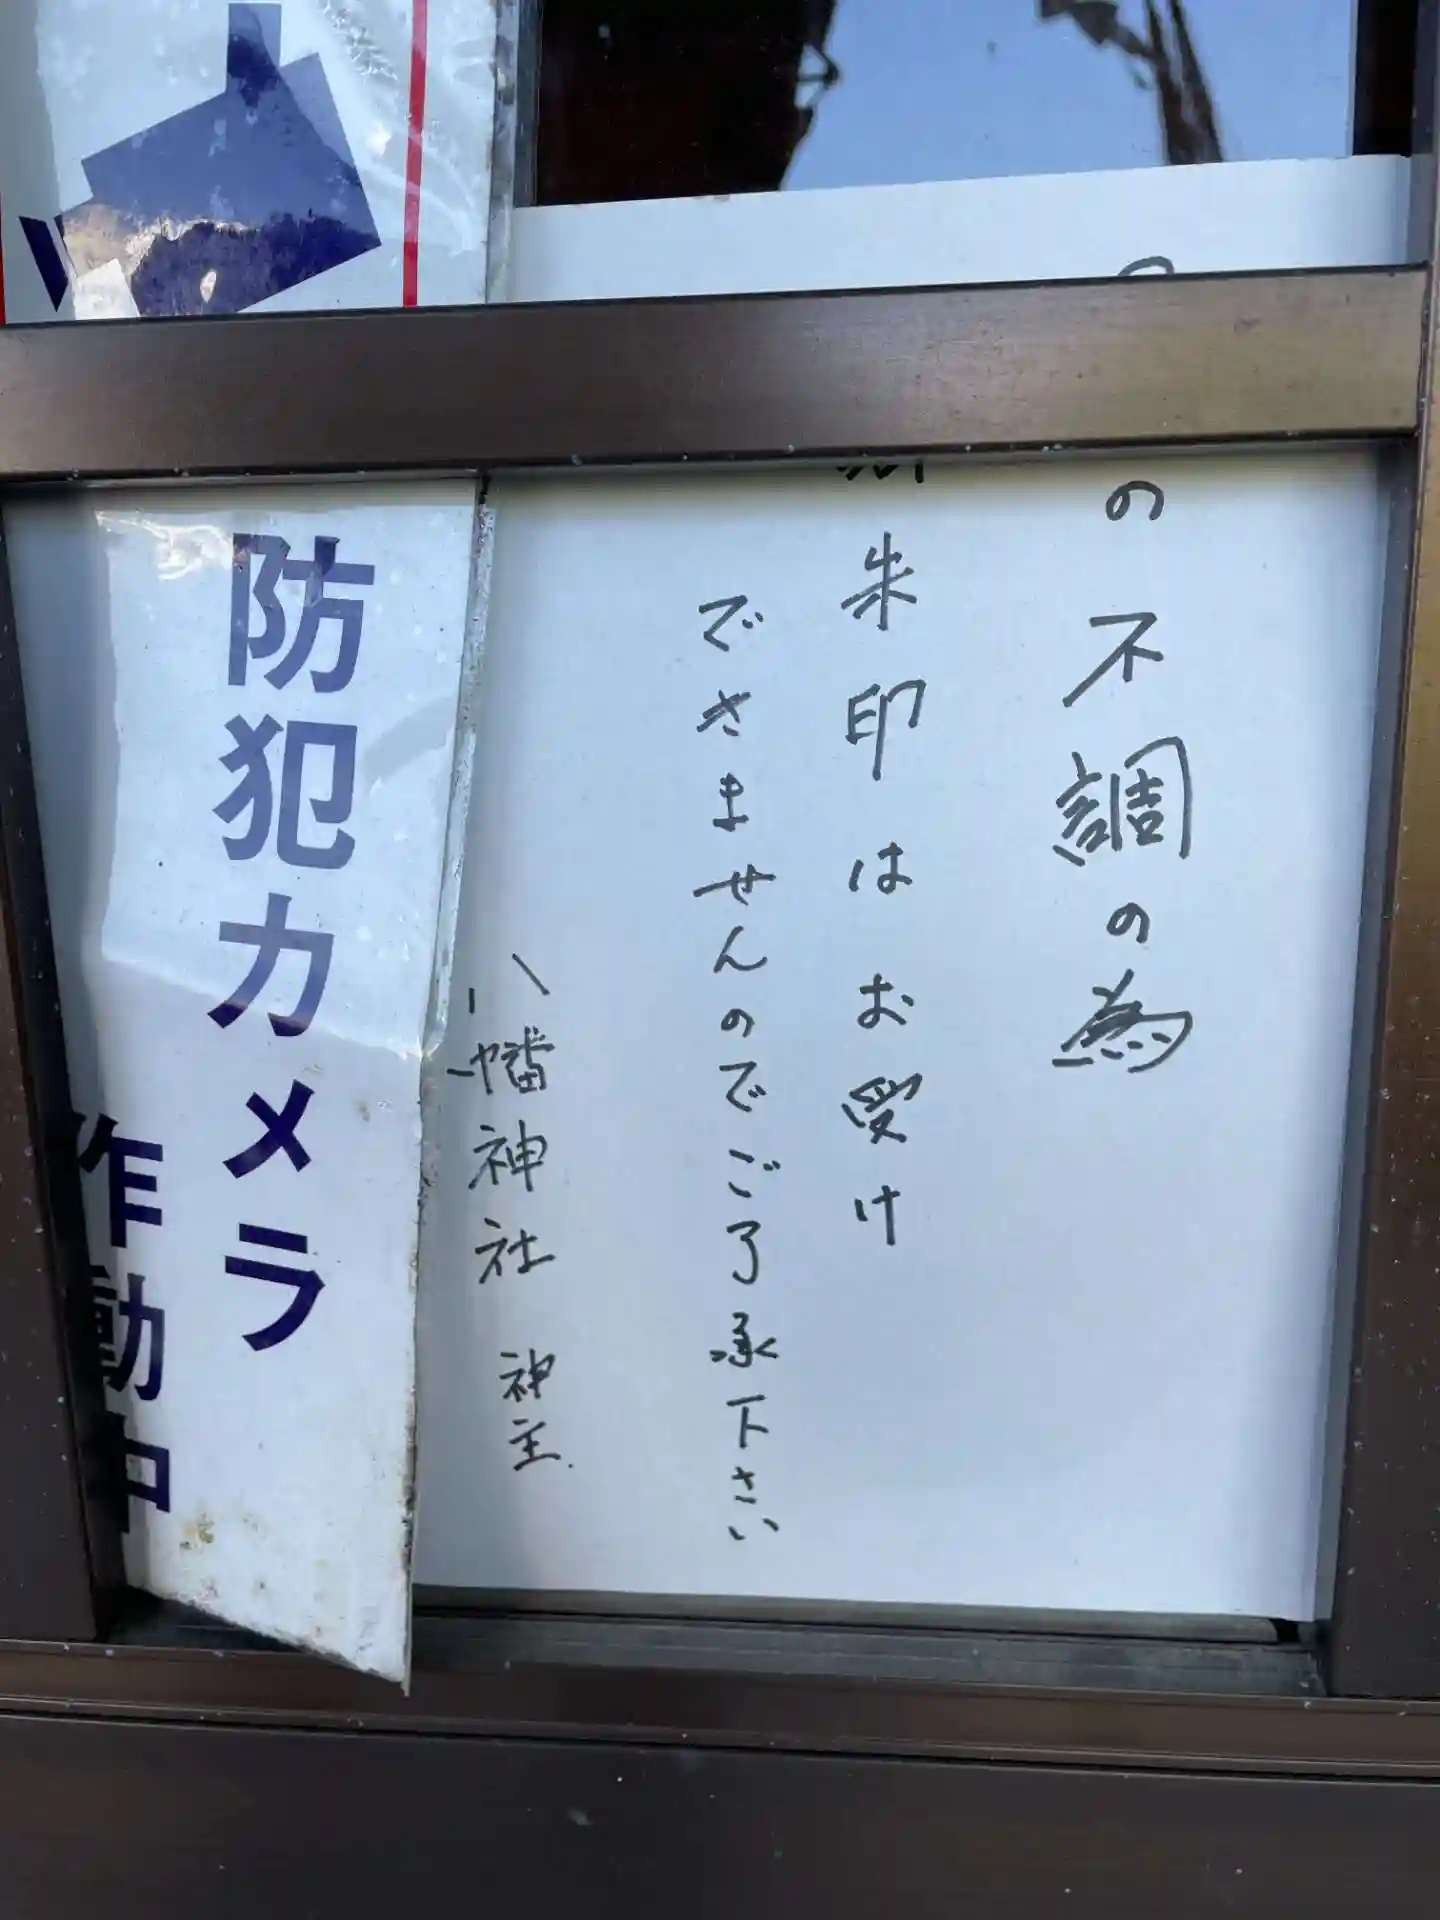 の不調の為
朱印はお受け
できませんのでご了承下さい
八幡神社 神主
防犯カメラ
作動中